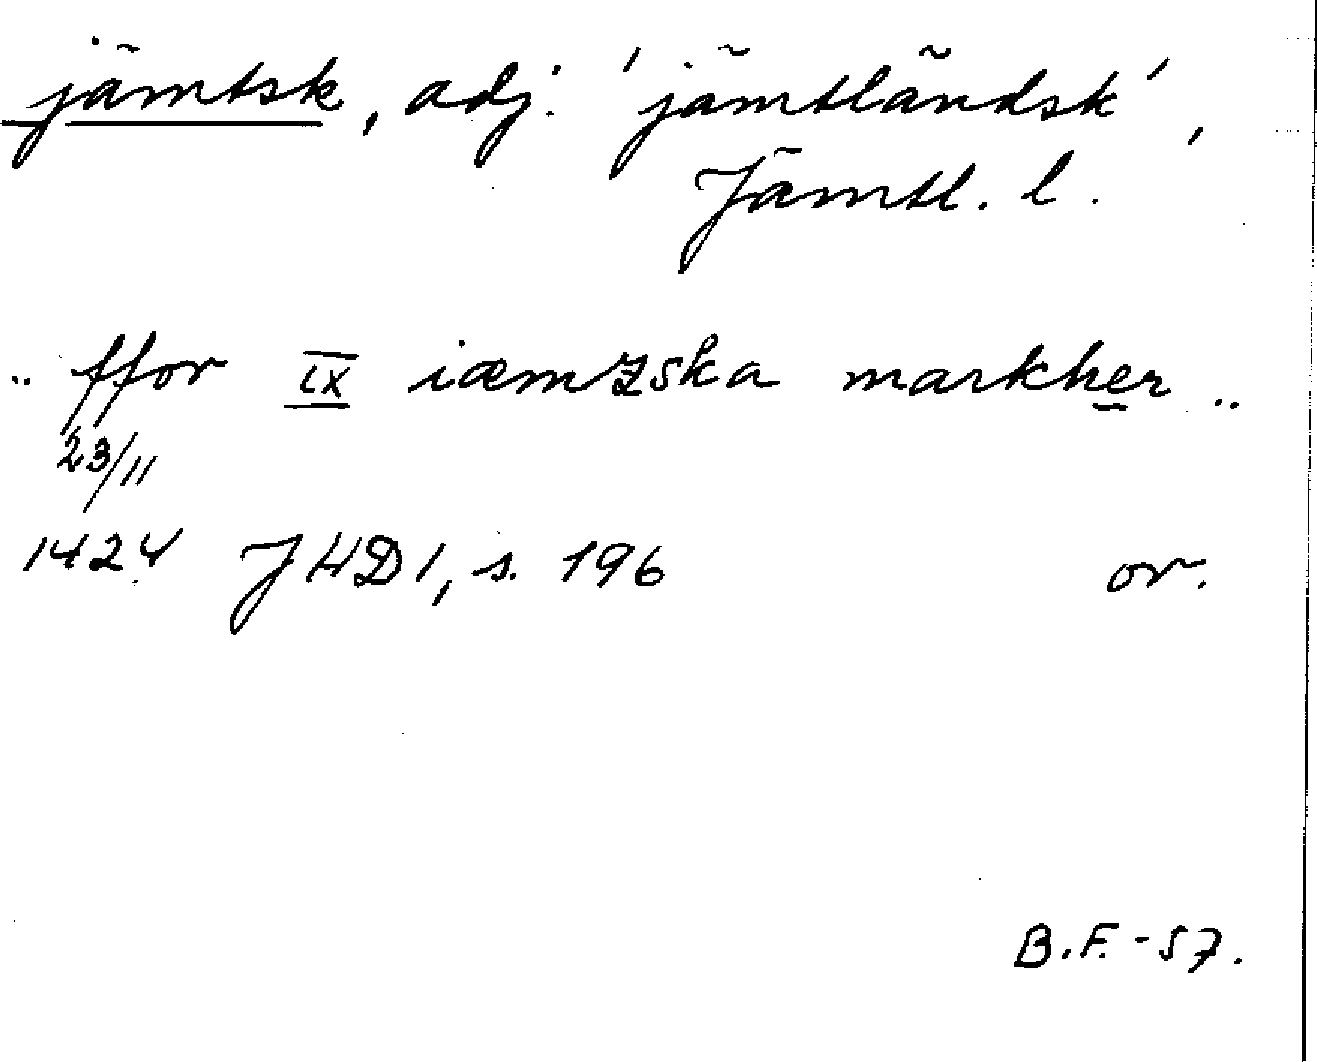 jämtsk, adj. 'jämtländsk',
Jämtl. l.
.. ffor IX iæmzska markher ..
23/11
1424 JHD1, s. 196 or.
B.F. - 57.